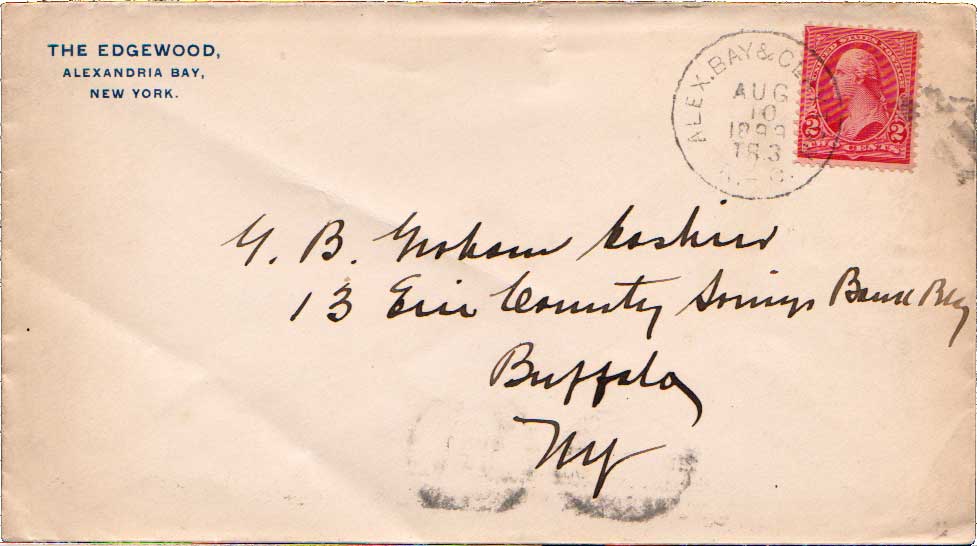 THE EDGEWOOD,
ALEXANDRIA BAY,
NEW YORK.
ALEX. BAY &
AUG
10
1899
UNITED STATES POSTAGE
2 2
TWO CENTS
G. B. Graham Cashier
13 Erie County Savings Bank Bldg
Buffalo
NY